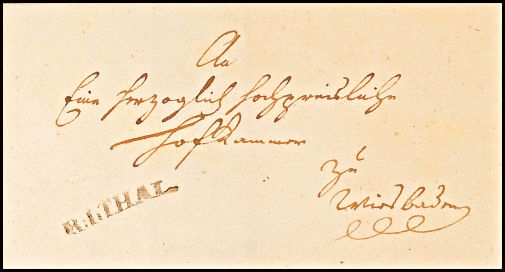 An
Eine herzoglich hochpreisliche
Hofkammer
zu
Wiesbaden
R.I.THAL